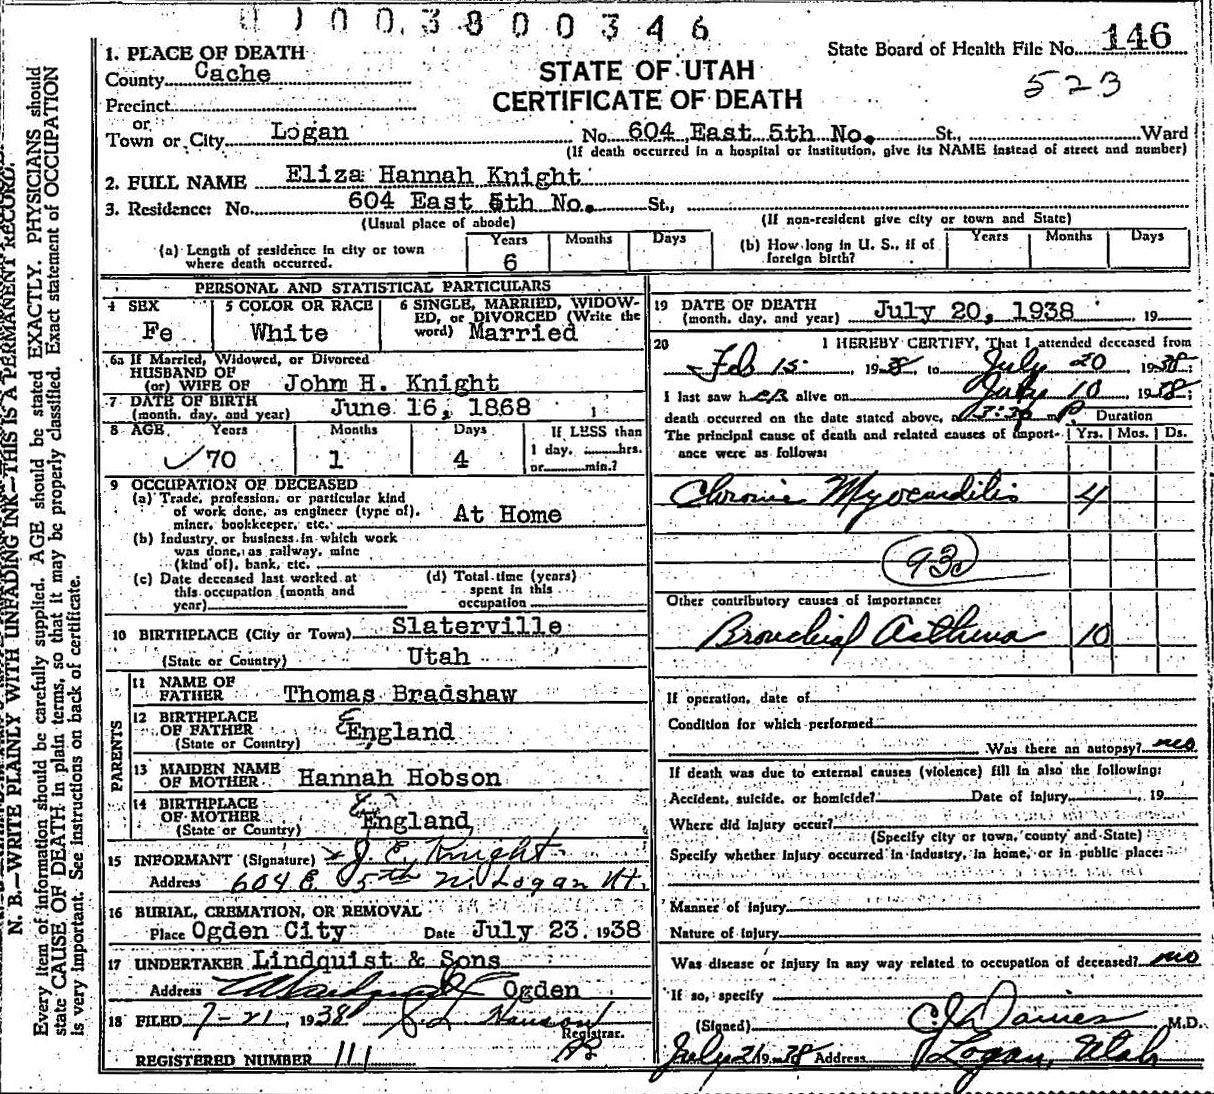 0 1 0 0 3 8 0 0 3 4 6
State Board of Health File No. 146
523
STATE OF UTAH
CERTIFICATE OF DEATH
1. PLACE OF DEATH
County Cache
Precinct
or
Town or City Logan No. 604 East 5th No. St., Ward
(If death occurred in a hospital or institution, give its NAME instead of street and number)
2. FULL NAME Eliza Hannah Knight
3. Residence: No. 604 East 5th No. St.,
(Usual place of abode) (If non-resident give city or town and State)
(a) Length of residence in city or town where death occurred. Years 6 Months Days
(b) How long in U. S., if of foreign birth? Years Months Days
PERSONAL AND STATISTICAL PARTICULARS
4 SEX Fe
5 COLOR OR RACE White
6 SINGLE, MARRIED, WIDOWED, or DIVORCED (Write the word) Married
6a If Married, Widowed, or Divorced
HUSBAND OF
(or) WIFE OF John H. Knight
7 DATE OF BIRTH
(month, day, and year) June 16, 1868
8 AGE Years 70 Months 1 Days 4
If LESS than
1 day, hrs.
or min.?
9 OCCUPATION OF DECEASED
(a) Trade, profession, or particular kind
of work done, as engineer (type of),
miner, bookkeeper, etc. At Home
(b) Industry, or business in which work
was done, as railway, mine
(kind of), bank, etc.
(c) Date deceased last worked at
this occupation (month and
year)
(d) Total time (years)
spent in this
occupation
10 BIRTHPLACE (City or Town) Slaterville
(State or Country) Utah
PARENTS
11 NAME OF
FATHER Thomas Bradshaw
12 BIRTHPLACE
OF FATHER England
(State or Country)
13 MAIDEN NAME
OF MOTHER Hannah Hobson
14 BIRTHPLACE
OF MOTHER England
(State or Country)
15 INFORMANT (Signature) J. E. Knight
Address 604 E 5th N. Logan Ut.
16 BURIAL, CREMATION, OR REMOVAL
Place Ogden City Date July 23, 1938
17 UNDERTAKER Lindquist & Sons
Address Ogden
18 FILED 7-21, 1938
Registrar.
REGISTERED NUMBER 111
19 DATE OF DEATH
(month, day, and year) July 20, 1938 19
20 I HEREBY CERTIFY, That I attended deceased from
Feb 15 1938, to July 20 1938;
I last saw her alive on July 10 1938;
death occurred on the date stated above, at m. P. Duration
The principal cause of death and related causes of importance were as follows: Yrs. Mos. Ds.
Chronic Myocarditis 4
93
Other contributory causes of importance:
Bronchial Asthma 10
If operation, date of
Condition for which performed
Was there an autopsy? no
If death was due to external causes (violence) fill in also the following:
Accident, suicide, or homicide? Date of injury , 19
Where did injury occur?
(Specify city or town, county and State)
Specify whether injury occurred in industry, in home, or in public place:
Manner of injury
Nature of injury
Was disease or injury in any way related to occupation of deceased? no
If so, specify
(Signed) M.D.
July 21 1938 Address Logan, Utah
N. B.—WRITE PLAINLY WITH UNFADING INK—THIS IS A PERMANENT RECORD.
Every item of information should be carefully supplied. AGE should be stated EXACTLY. PHYSICIANS should
state CAUSE OF DEATH in plain terms, so that it may be properly classified. Exact statement of OCCUPATION
is very important. See instructions on back of certificate.